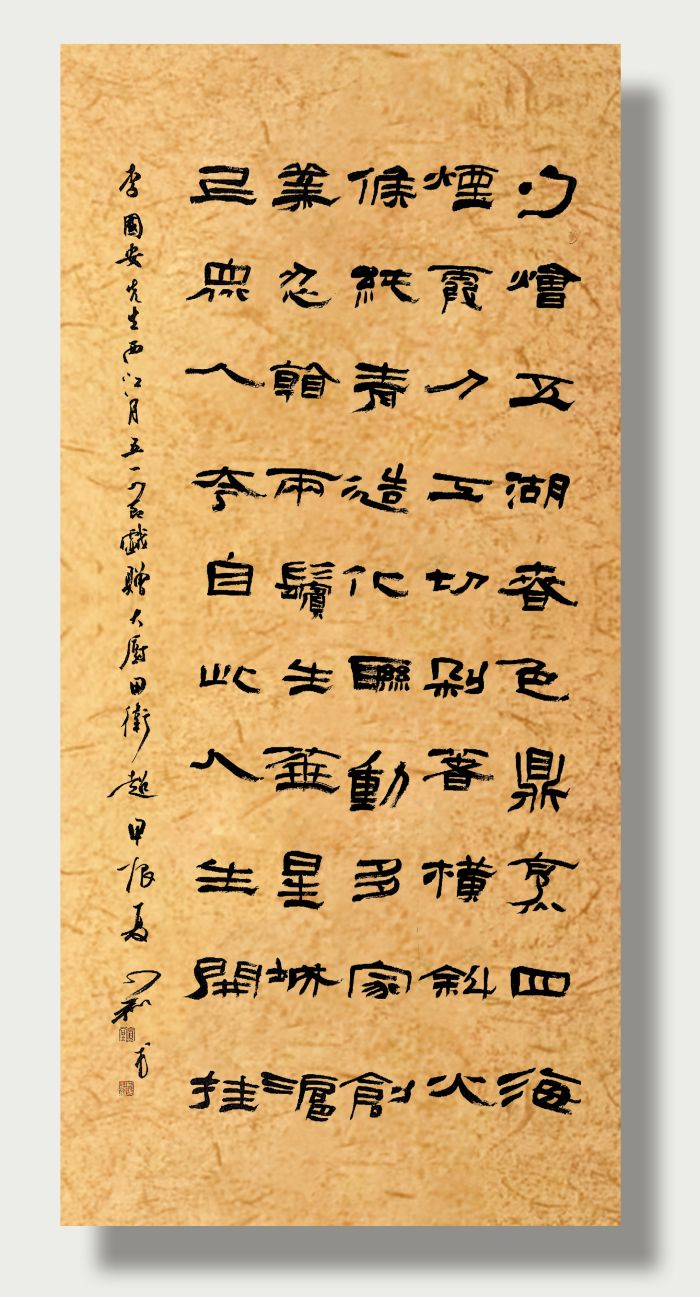 勺燴五湖春色鼎烹四海
煙霞刀工切剁著橫斜火
候純青造化聯動多家創
業忍看兩鬢生華星城滬
邑眾人夸自此人生開挂
李國安先生西江月五一節戲贈大廚田衛超甲辰夏